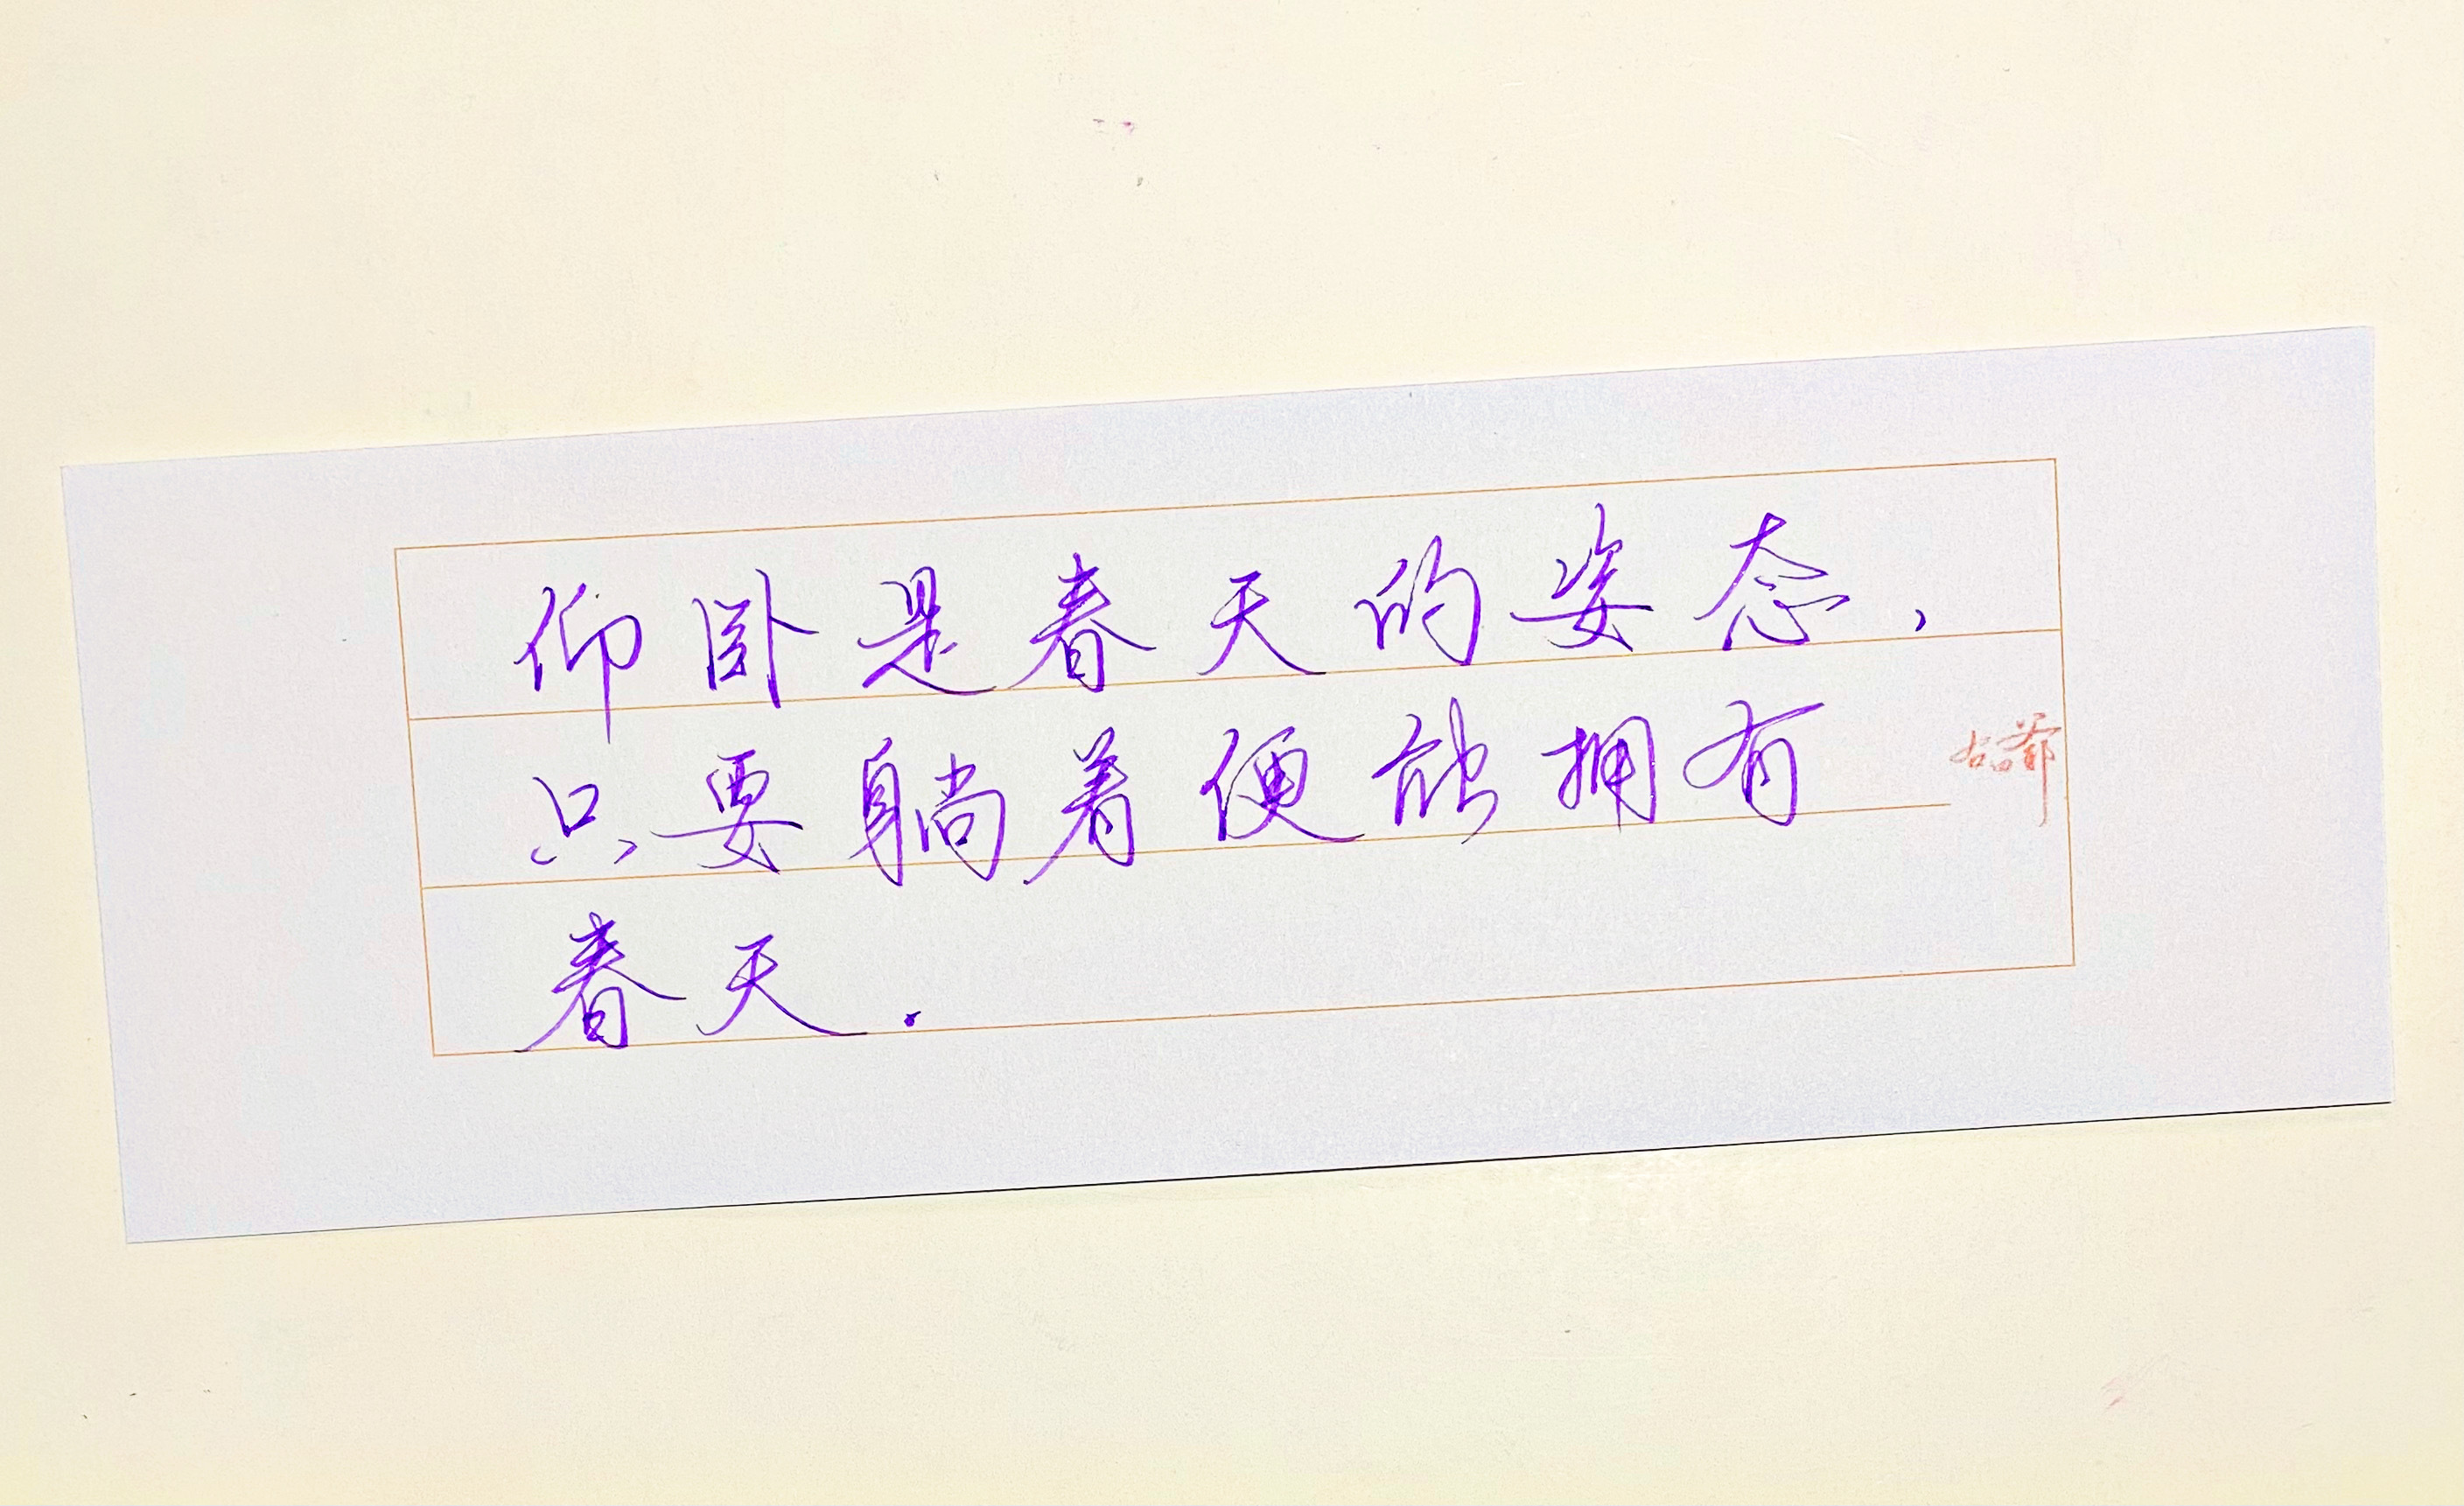 仰卧是春天的姿态,
只要躺着便能拥有
春天.